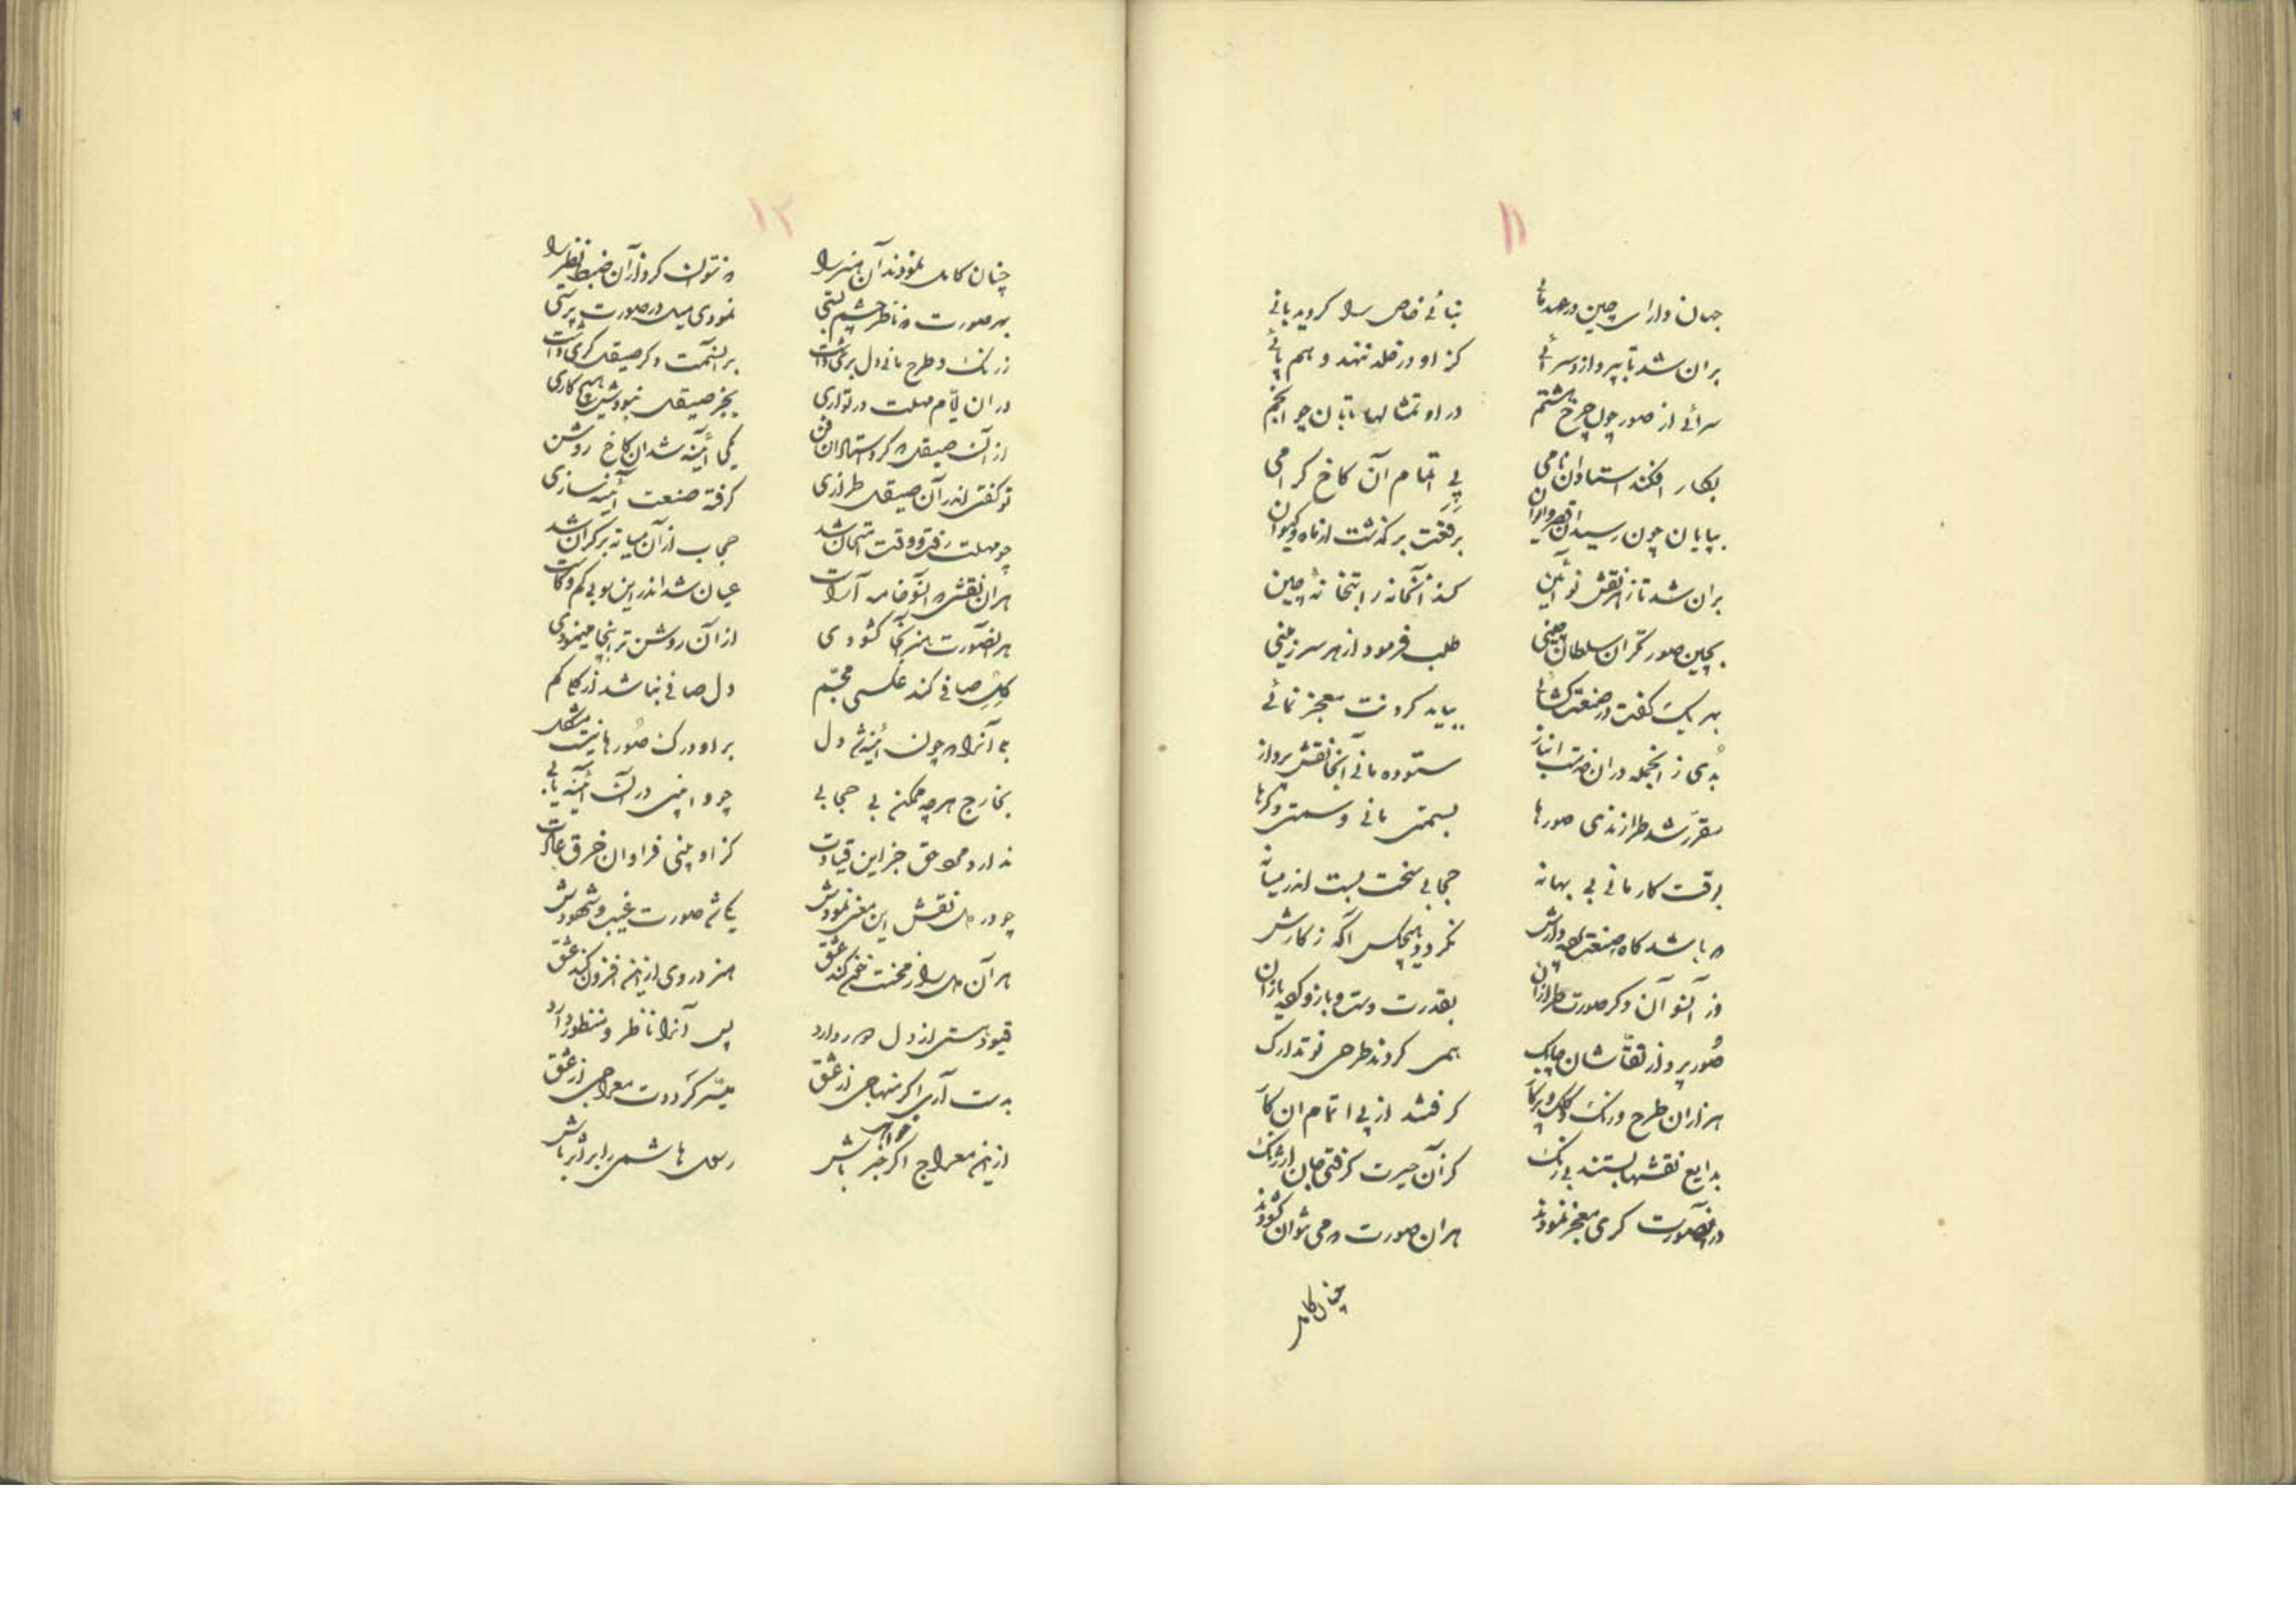 ۱۱
جهان دارای چین در عهد مانی بنائی خاص را گردید بانی
بران شد تا بپردازد سرائی کز او در خلد ننهد و هم پائی
سرائی از صور چون چرخ هشتم در او تمثالها تابان چو انجم
بکار افکند استادان نامی پی اتمام آن کاخ گرامی
بپایان چون رسید آن قصر و ایوان برفعت برگذشت از ماه و کیوان
بران شد تا ز هر نقش نو آئین کند آنخانه را بتخانهٔ چین
بچین صورتگران سلطان چینی طلب فرمود از هر سرزمینی
بهر یک گفت در صنعت گشائی بباید کردنت معجز نمائی
بدی ز انجمله دران خدمت انباز ستوده مانی آنجا نقش پرداز
مقرر شد طرازندی صورها بسمتی مانی و سمتی دگرها
بوقت کار مانی بی بهانه حجابی سخت بست اندر میانه
که باشد گاه صنعت پرده دارش نگردد هیچکس آگه ز کارش
وز آنسو آن دگر صورت طرازان بقدرت دست و بازو یازان
صُور پرداز نقّاشان چابک همی کردند طرحی نو تدارک
هزاران طرح و رنگ و کلک و پرگار گرفتند از پی اتمام ان کار
بدایع نقشها بستند بی رنگ کز آن حیرت گرفتی جان ارژنگ
در آنصورت گری معجز نمودند هران صورت که می‌توان گشودند
چنان کامل
۱۲
چنان کامل نمودند آن هنر را که نتوان کرد از آن ضبط نظر را
بهر صورت که ناظر چشم بستی نمودی میل در صورت پرستی
ز رنگ و طرح مانی دل بری داشت بر آنسمت دگر صیقل گری داشت
در ان ایّام مهلت در تواری بجز صیقل نبودش هیچ کاری
از آن صیقل که کرد استاد ان فن یکی آئینه شد ان کاخ روشن
تو گفتی اندر آن صیقل طرازی گرفته صنعت آئینه سازی
چو مهلت رفت و وقت امتحان شد حجاب از آن میانه بر کران شد
هر ان نقشی که آنسو خامه آراست عیان شد اندر این سو بی کم و کاست
هر آنصورت هنر آنجا گشودی از آن روشن تر اینجا مینمودی
گل صافی کند عکسی مجسّم دل صافی نباشد از گل کم
هر آنرا که چون آئینه شد دل بر او درک صُورها نیست مشکل
بخارج هرچه ممکن بی حجابی چو وا بینی در آن آئینه یابی
ندارد محو حق جز این قیادت کز او بینی فراوان خرق عادت
چو در دل نقش این معنی نمودش یکی شد صورت غیب و شهودش
هر آن دل را ز محنت خون کند عشق هنر در وی ازینهم افزون کند عشق
قیود هستی از دل بردارد پس آنرا ناظر و منظور دارد
بدست آری اگر منهاجی از عشق میسّر گرددت معراجی از عشق
ازین معراج اگر خواهی خبر باش رسول هاشمی را بر اثر باش